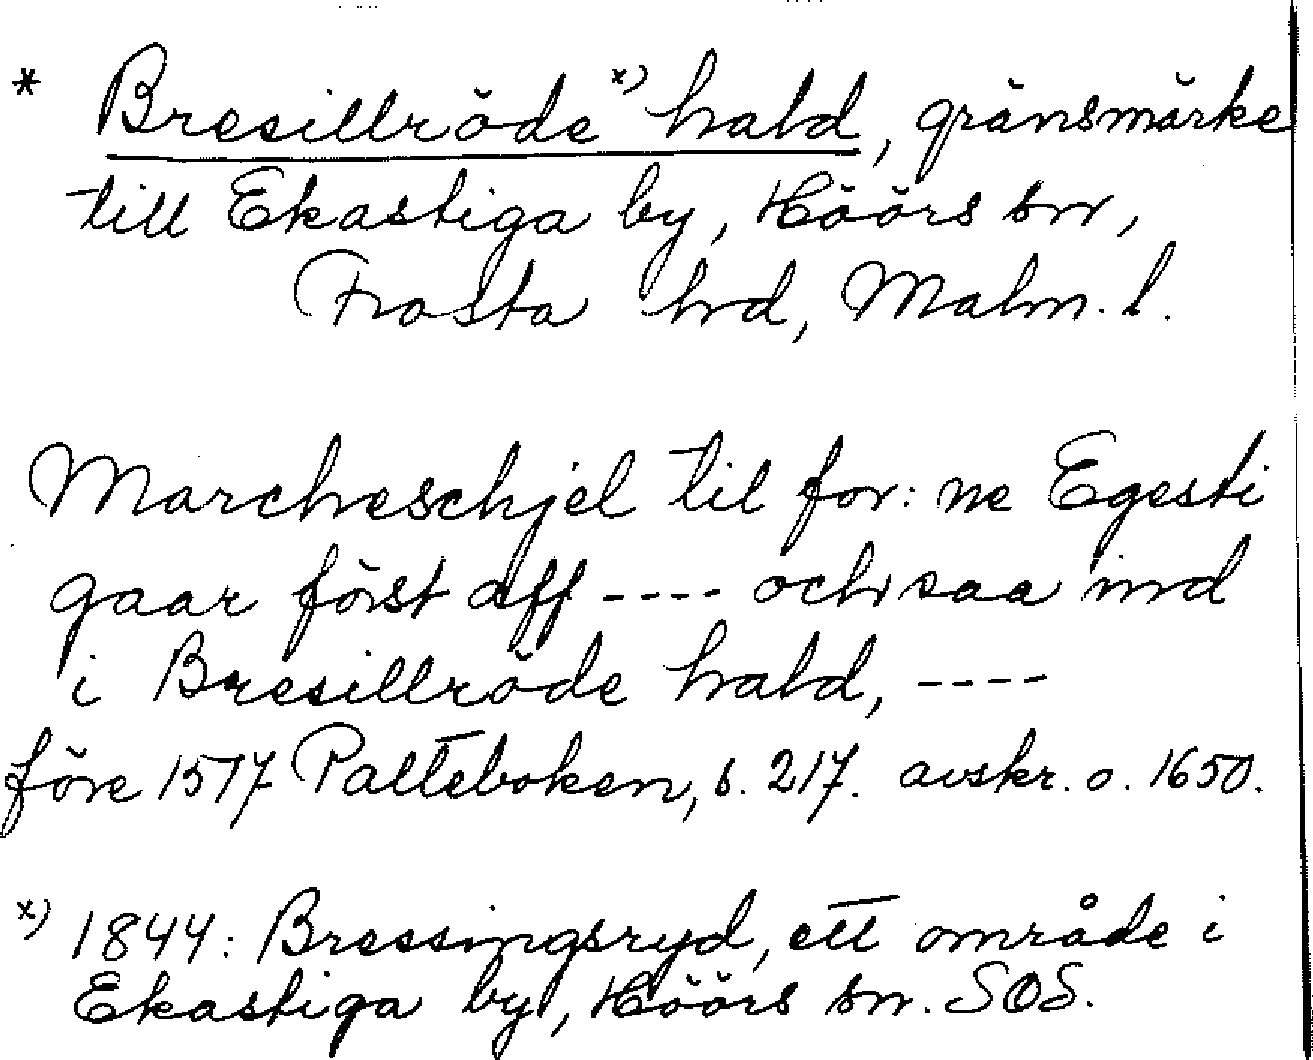 * Bresillröde x) hald, gränsmärke
till Ekastiga by, Höörs sn,
Frosta hd, Malm. l.
Marcheschjel til for: ne Egesti
gaar först aff ---- och saa ind
i Bresillröde hald, ----
före 1517 Palteboken, s. 217. avskr. o. 1650.
x) 1844: Bressingsryd, ett område i
Ekastiga by, Höörs sn. SOS.